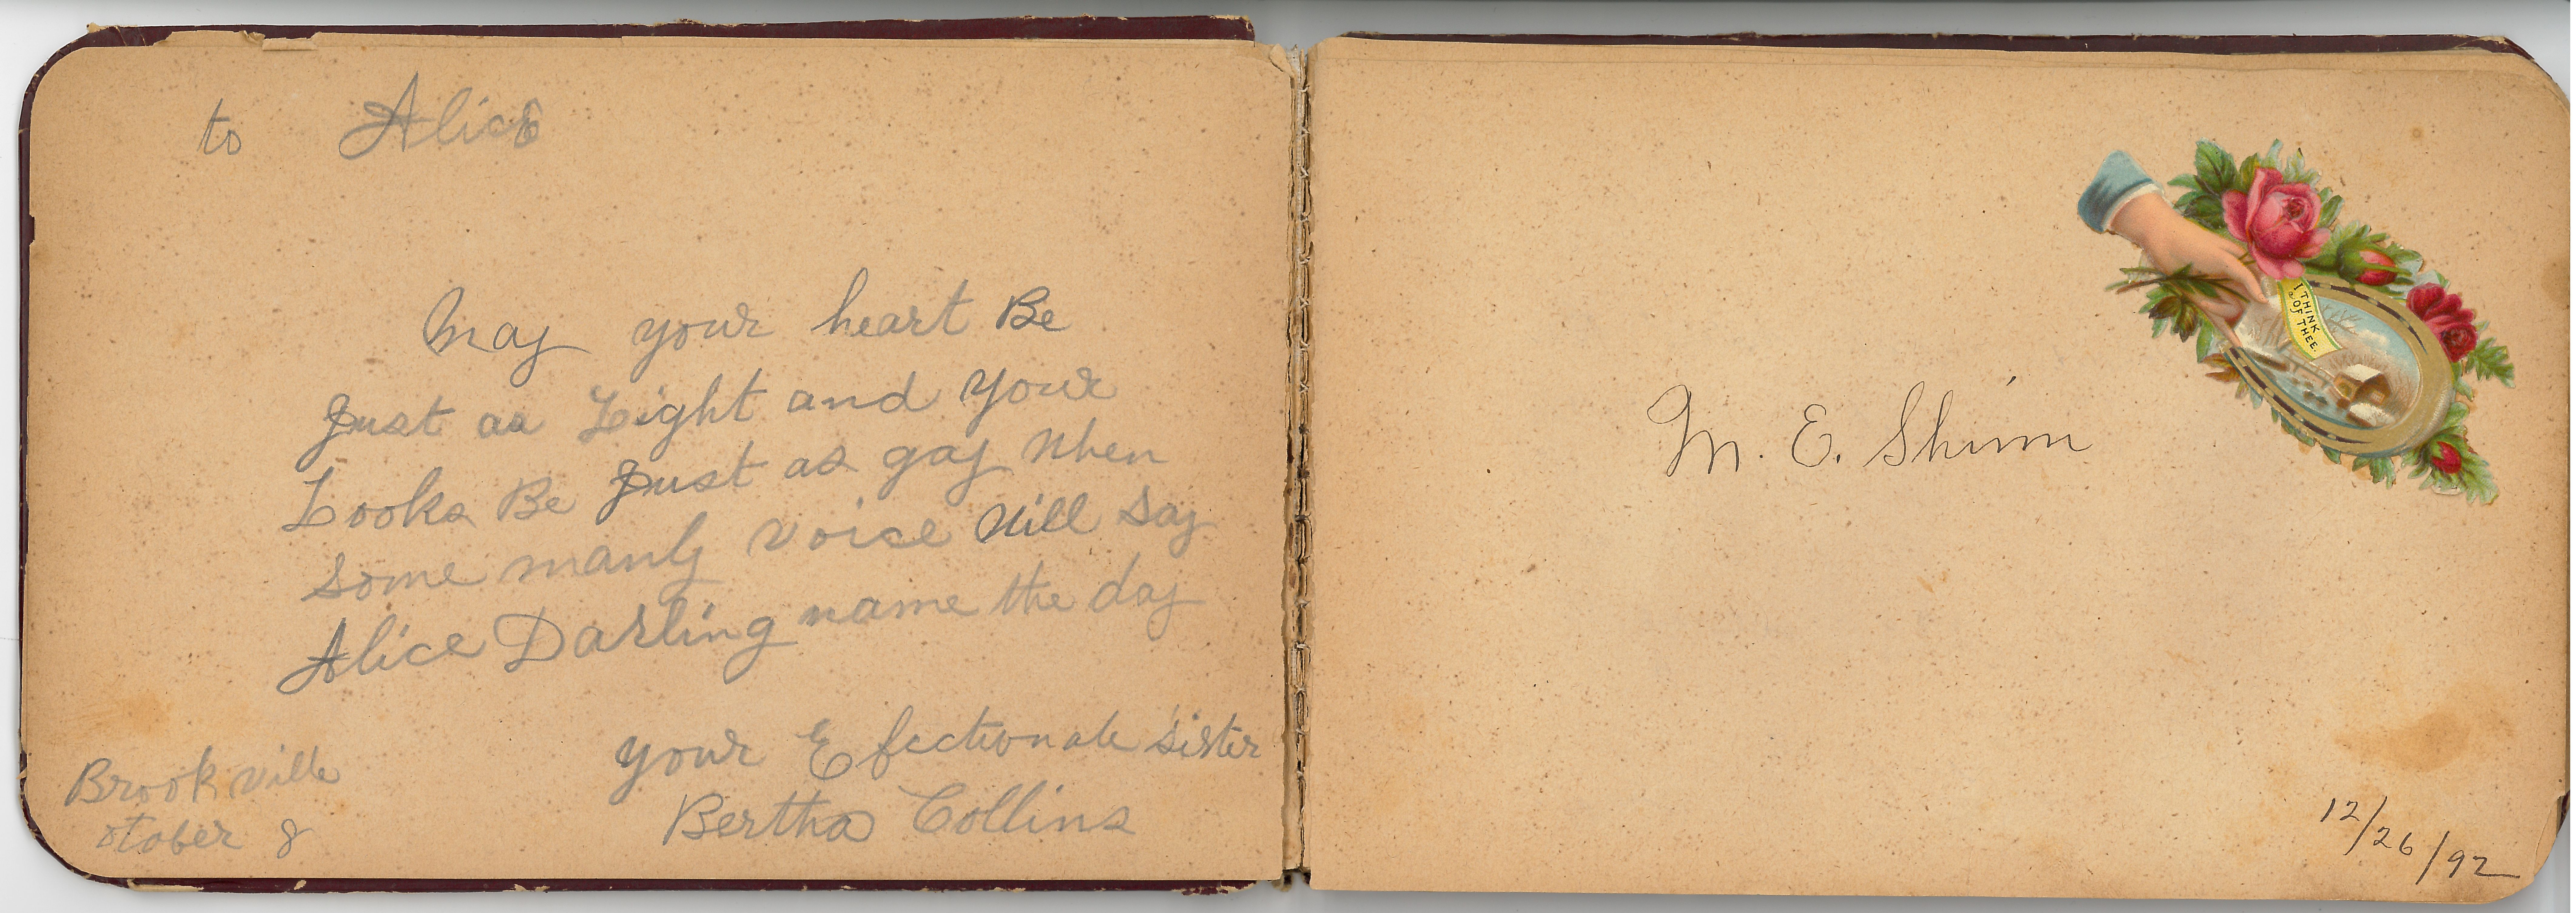 to Alice
May your heart Be
Just as Light and your
Looks Be Just as gay when
some manly voice will say
Alice Darling name the day
your Efectionate sister
Bertha Collins
Brookville
otober 8
I THINK
OF THEE.
M. E. Shinn
12/26/92